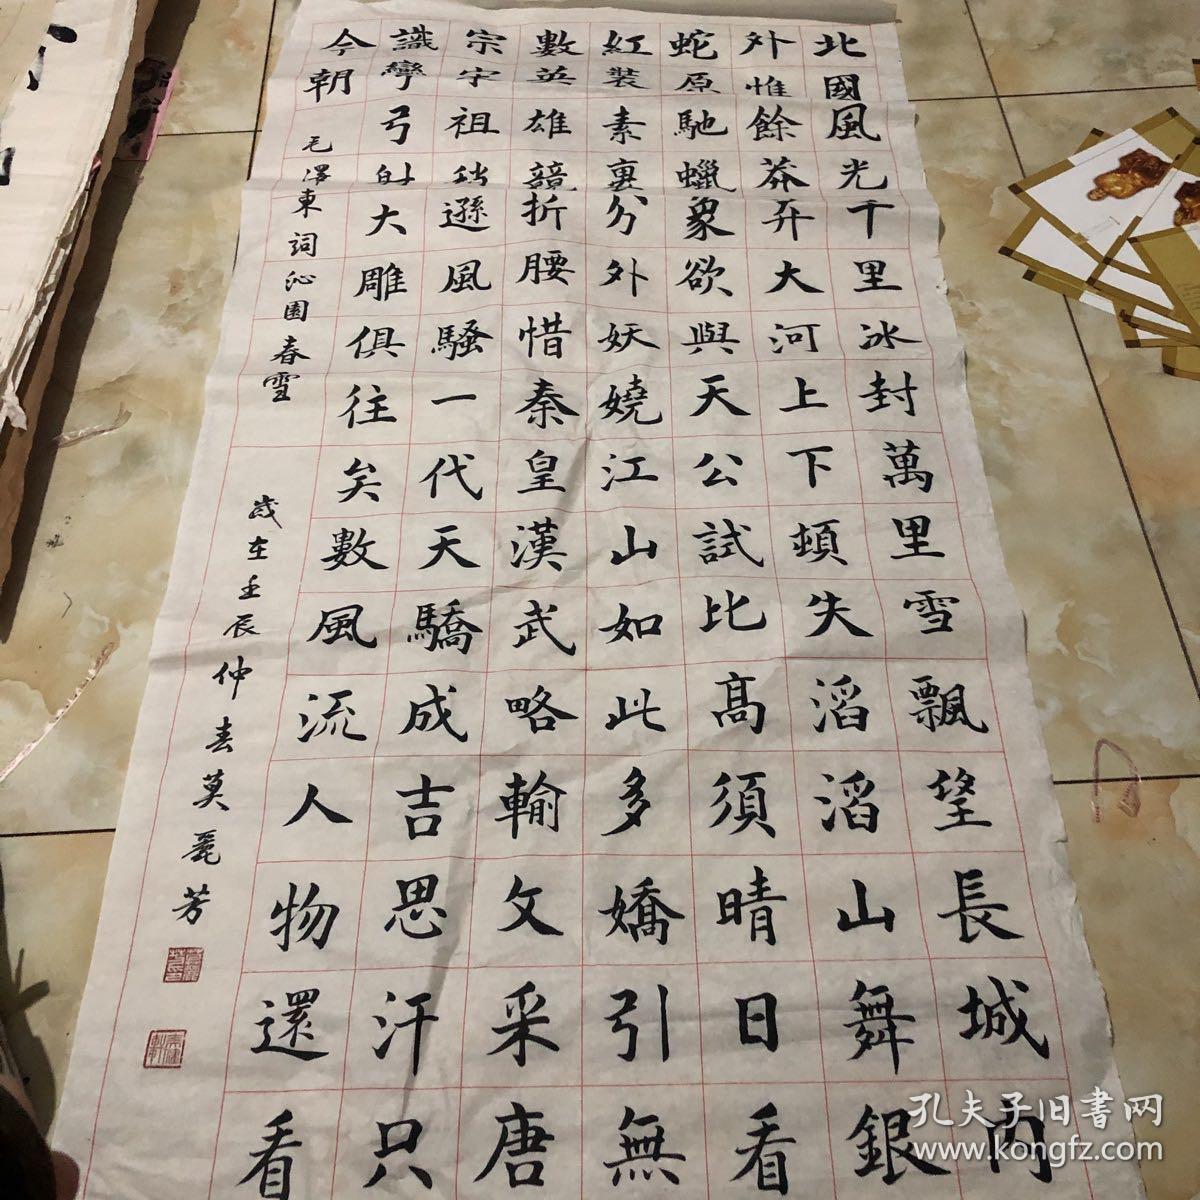 北國風光千里冰封萬里雪飄望長城内
外惟餘莽莽大河上下頓失滔滔山舞銀
蛇原馳蠟象欲與天公試比高須晴日看
紅裝素裹分外妖嬈江山如此多嬌引無
數英雄競折腰惜秦皇漢武略輸文采唐
宗宋祖稍遜風騷一代天驕成吉思汗只
識彎弓射大雕俱往矣數風流人物還看
今朝
毛澤東詞沁園春雪
歲在壬辰仲春莫麗芳
孔夫子旧書网
www.kongfz.com